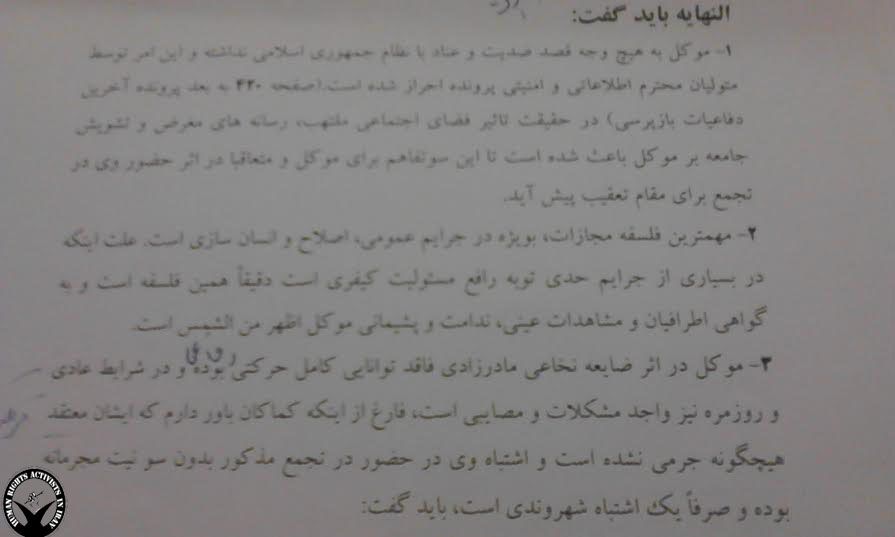 النهایه باید گفت:
۱- موکل به هیچ وجه قصد ضدیت و عناد با نظام جمهوری اسلامی نداشته و این امر توسط
متولیان محترم اطلاعاتی و امنیتی پرونده احراز شده است.(صفحه ۴۲۰ به بعد پرونده آخرین
دفاعیات بازپرسی) در حقیقت تاثیر فضای اجتماعی ملتهب، رسانه های مغرض و تشویش
جامعه بر موکل باعث شده است تا این سوتفاهم برای موکل و متعاقبا در اثر حضور وی در
تجمع برای مقام تعقیب پیش آید.
۲- مهمترین فلسفه مجازات، بویژه در جرایم عمومی، اصلاح و انسان سازی است. علت اینکه
در بسیاری از جرایم حدی توبه رافع مسئولیت کیفری است دقیقاً همین فلسفه است و به
گواهی اطرافیان و مشاهدات عینی، ندامت و پشیمانی موکل اظهر من الشمس است.
۳- موکل در اثر ضایعه نخاعی مادرزادی فاقد توانایی کامل حرکتی بوده و در شرایط عادی
و روزمره نیز واجد مشکلات و مصایبی است، فارغ از اینکه کماکان باور دارم که ایشان معتقد
هیچگونه جرمی نشده است و اشتباه وی در حضور در تجمع مذکور بدون سو نیت مجرمانه
بوده و صرفاً یک اشتباه شهروندی است، باید گفت:
HUMAN RIGHTS ACTIVISTS IN IRAN